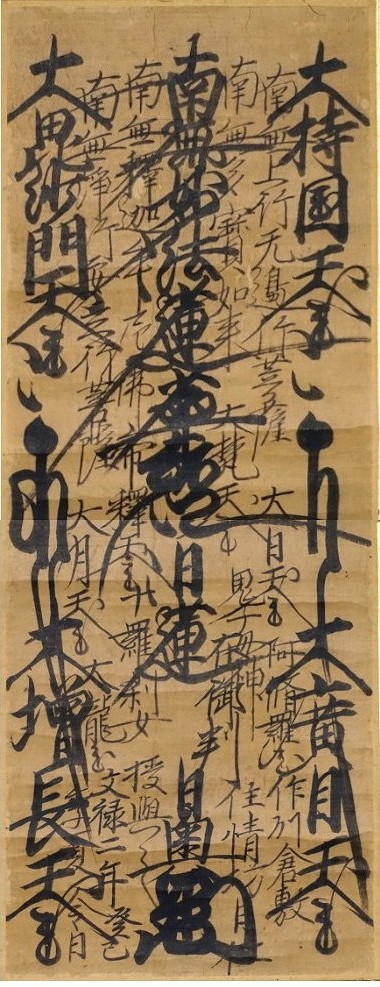 大持国天王
大廣目天王
南無上行无邉行菩薩 大日天王 阿脩羅王
作州倉敷
南無多寶如来 大梵天王 鬼子母神
南無妙法蓮華經 日蓮 在御判
南無釋迦牟尼佛 帝釋天王 十羅刹女
授與之
南無浄行安立行菩薩 大月天王 大龍王
文禄二年癸巳
大毘沙門天王
大増長天王